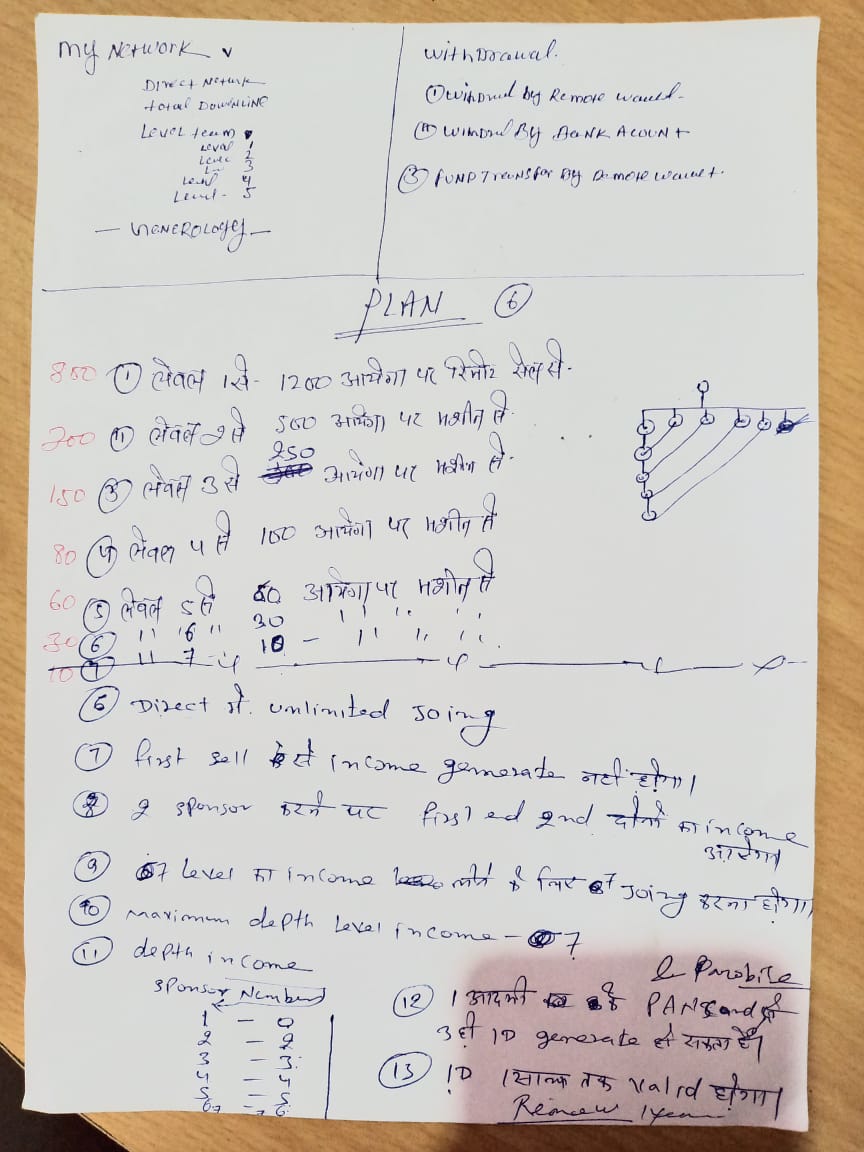 My NETWORK
DIRECT Network
total DOWNLINE
LEVEL team
Level 1
Level 2
3
Level 4
Level - 5
— GENEROLOGY —
withdrawal.
① withdrawl by Remote
② withdrawl By BANK ACOUNT
③ FUND Transfer By Remote
PLAN ⑥
800 ① लेवल 1 से - 1200 आयेगा पर रिमोट सेल से.
200 ② लेवल 2 से 500 आयेगा पर मशीन से
150 ③ लेवल 3 से 250 आयेगा पर मशीन से.
80 ④ लेवल 4 से 100 आयेगा पर मशीन से
60 ⑤ लेवल 5 से 60 आयेगा पर मशीन से
30 ⑥ " 6 " 30 " " "
10 ⑦ " 7 - " 10 - " " "
⑥ Direct में. unlimited Joing
⑦ first sell से income generate नहीं होगा।
⑧ 2 sponsor करने पर first ed 2nd दोनो का income
आएगा।
⑨ 7 Level का income लेने के लिए 7 Joing करना होगा।
⑩ Maximum depth Level income - 7
⑪ depth income
Sponsor Number
1 - 0
2 - 2
3 - 3
4 - 4
5 - 5
67 - 7 6
& Mobile
⑫ 1 आदमी के PAN Card से
3 ही ID generate हो सकता है।
⑬ ID 1 साल तक valid होगा।
Renew 1 year